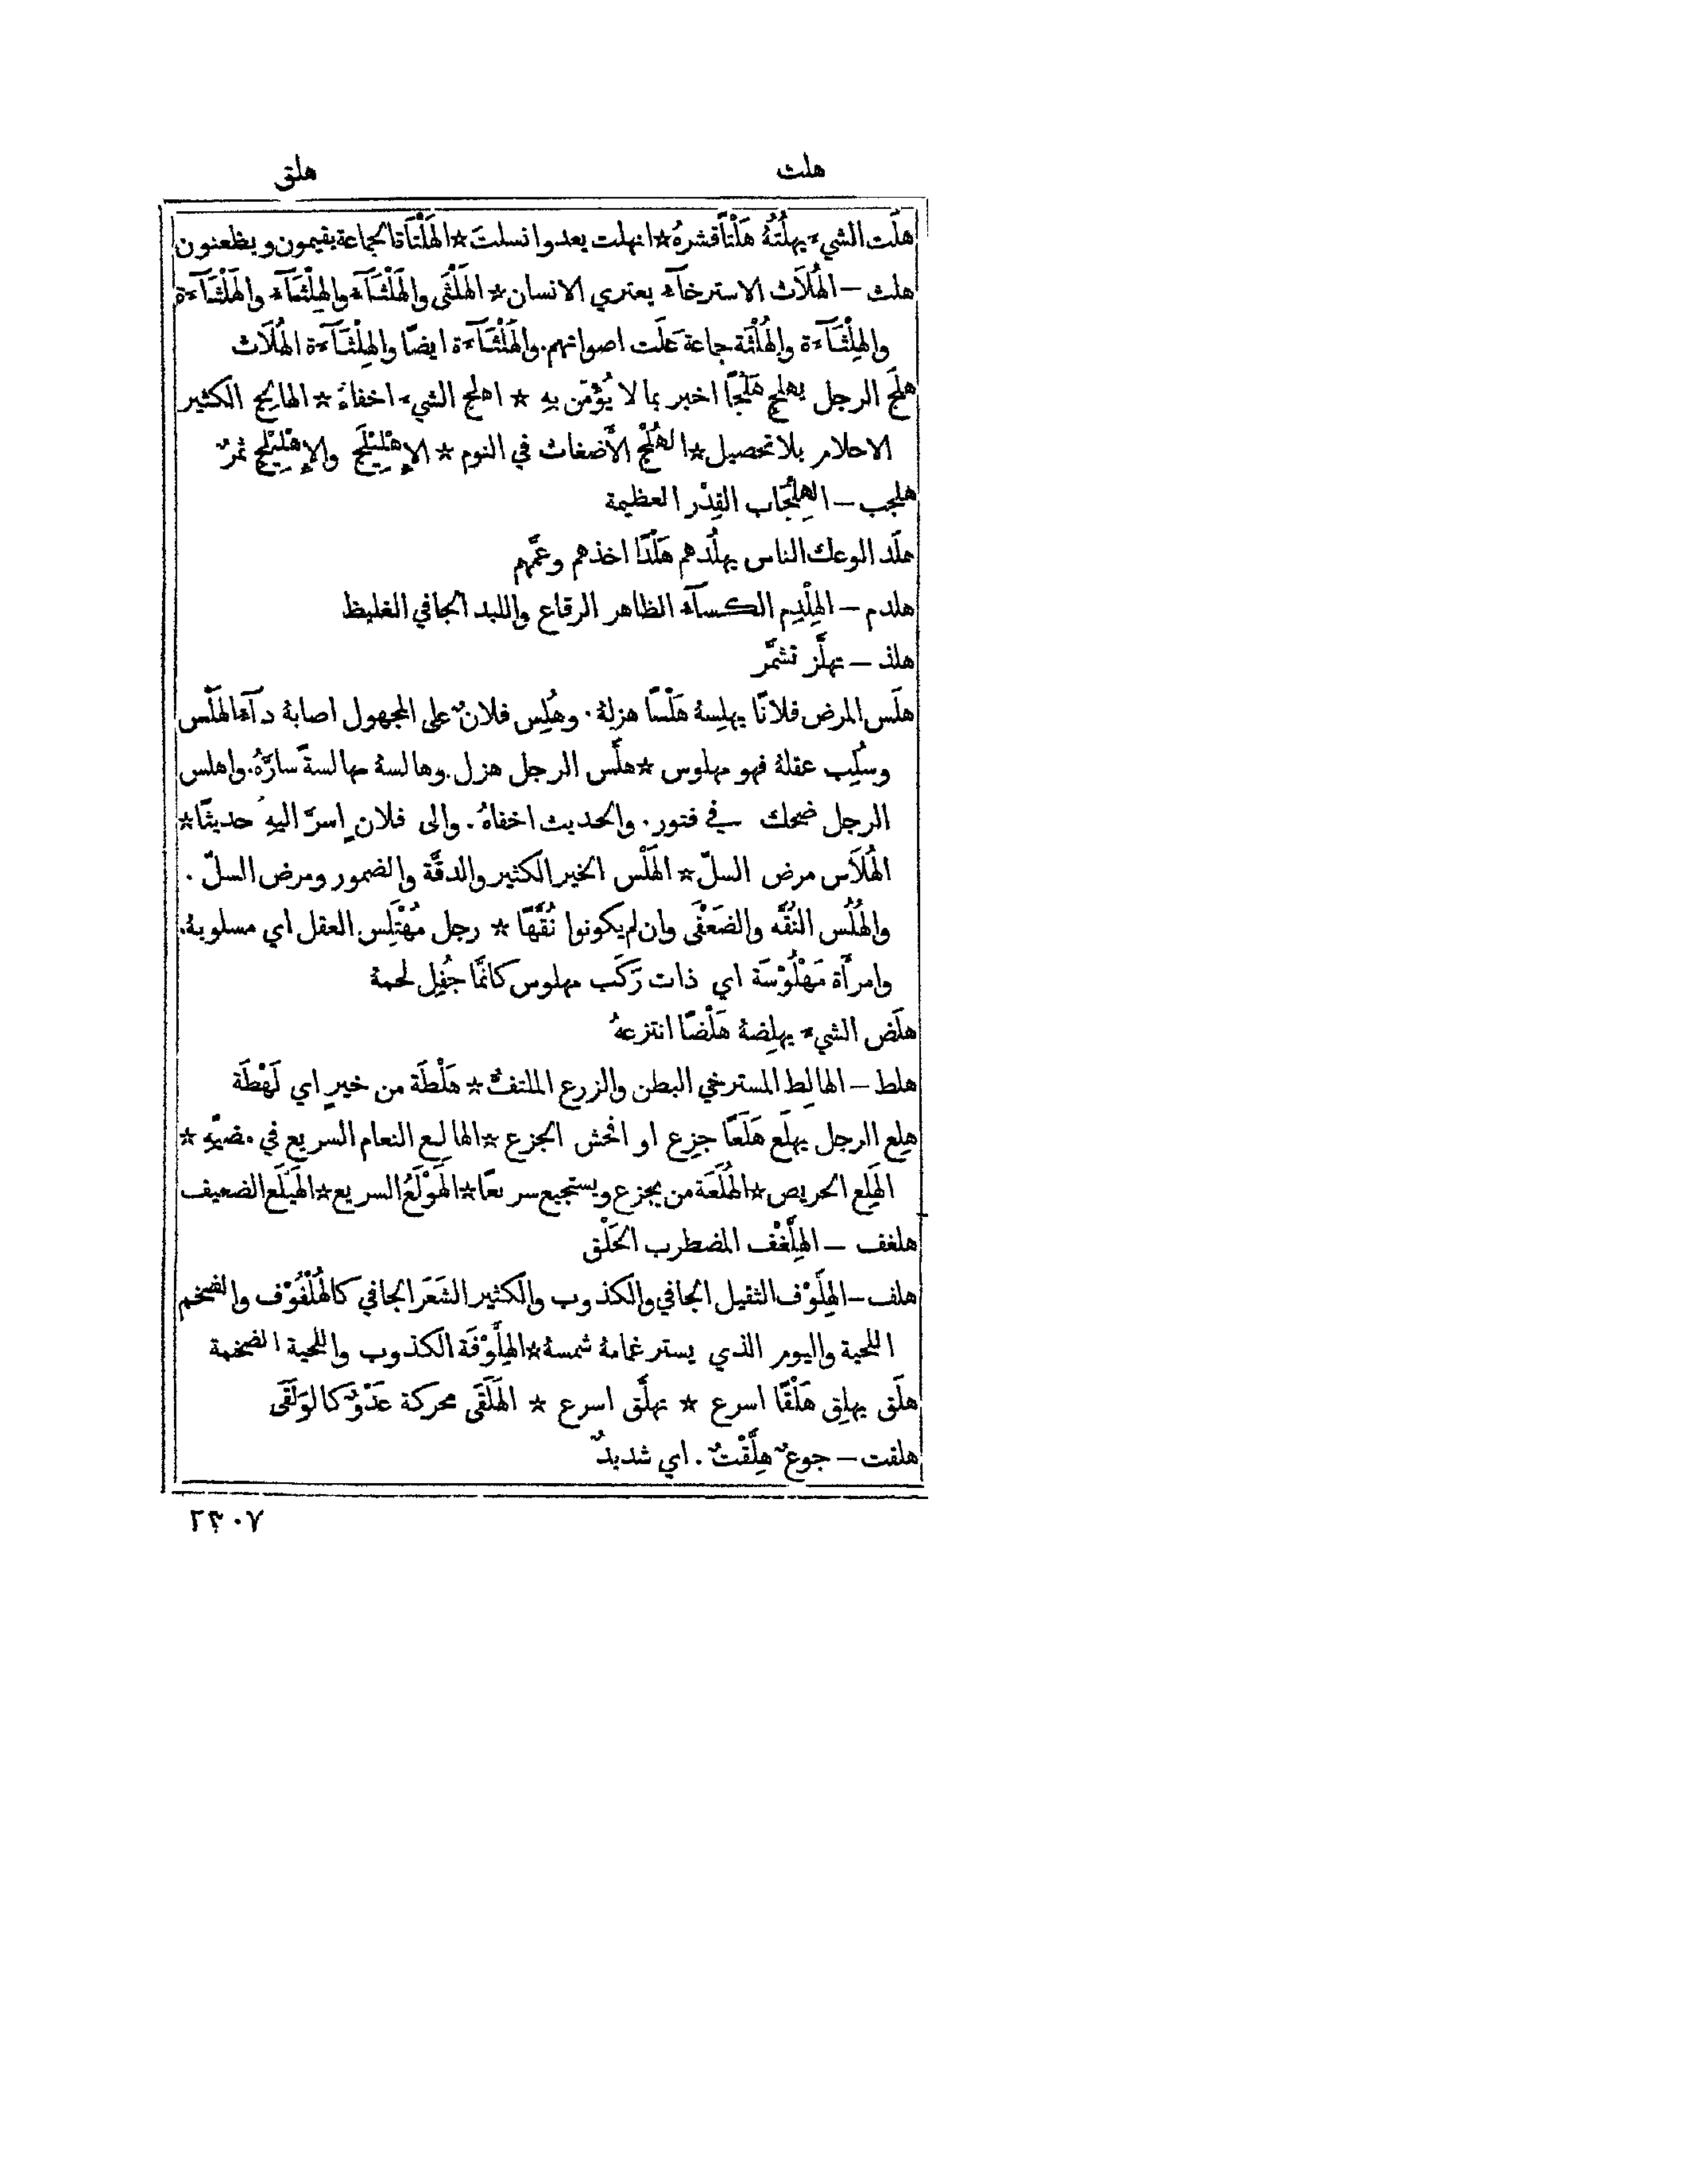 هلث
هلق
هلَت الشيء يهلُتُهُ هَلْتًا قشرهُ ☆ انهلت يعدو انسلتَ ☆ الهَلْتَاة الجماعة يقيمون ويظعنون
هلث – الهُلَاث الاسترخآء يعتري الانسان ☆ الهَلْثَى والهَلْثَآء والهِلْثَآء والهَلْثَآءة
والهِلْثَآءة والهُلْثَة جماعة عَلَت اصواتهم. والهَلْثَآءة ايضًا والهِلْثَآءة الهُلَاث
هلَج الرجل يهلِج هَلْجًا اخبر بما لا يُؤْمَن بهِ ☆ اهلج الشيء اخفاهُ ☆ الهالج الكثير
الاحلام بلا تحصيل ☆ الهُلْج الأَضغاث في النوم ☆ الإِهْلِيْلَج والإِهْلِيْلِج ثمرٌ
هلجب – الهِلْجَاب القِدْر العظيمة
هلَد الوعك الناس يهلُدهم هَلْدًا اخذهم وعَمَّهم
هلدم – الهِلْدِم الكسآء الظاهر الرقاع واللبد الجافي الغليظ
هلذ – تهلَّز تشمَّر
هلَس المرض فلانًا يهلِسهُ هَلْسًا هزلهُ. وهُلِس فلانٌ على المجهول اصابهُ دآء الهَلْس
وسُلِب عقلهُ فهو مهلوس ☆ هلَّس الرجل هزل. وهالسهُ مهالسةً سارَّهُ. واهلس
الرجل ضحك في فتور. والحديث اخفاهُ. والى فلانٍ اسرَّ اليهِ حديثًا ☆
الهُلَاس مرض السلّ ☆ الهَلْس الخير الكثير والدقَّة والضمور ومرض السلّ.
والهُلُس النُقَّه والضَعْفَى وان لم يكونوا نُقَّهًا ☆ رجل مُهْتَلِس العقل اي مسلوبهُ.
وامرأَة مَهْلُوْسَة اي ذات رَكَب مهلوس كانَّما جُفِل لحمهُ
هلَض الشيء يهلِضهُ هَلْضًا انتزعهُ
هلط – الهالِط المسترخي البطن والزرع الملتفّ ☆ هَلْطَة من خيرٍ اي لَهْطَة
هلِع الرجل يهلَع هَلَعًا جزِع او افحش الجزع ☆ الهالِع النعام السريع في مضيّهِ ☆
الهَلِع الحريص ☆ الهُلَعَة من يجزع ويستجيع سريعًا ☆ الهَوْلَعُ السريع ☆ الهَيْلَع الضعيف
هلغف – الهِلَّغْف المضطرب الخَلْق
هلف – الهِلَّوْف الثقيل الجافي والكذوب والكثير الشَعَر الجافي كالهُلْفُوْف والضخم
اللحية واليوم الذي يستر غمامهُ شمسهُ ☆ الهِلَّوْفَة الكذوب واللحية الضخمة
هلَق يهلِق هَلْقًا اسرع ☆ تهلَّق اسرع ☆ الهَلَقَى محركة عَدْوٌ كالوَلَقَى
هلقت – جوعٌ هِلَّقْتٌ. اي شديدٌ
٢٣٠٧